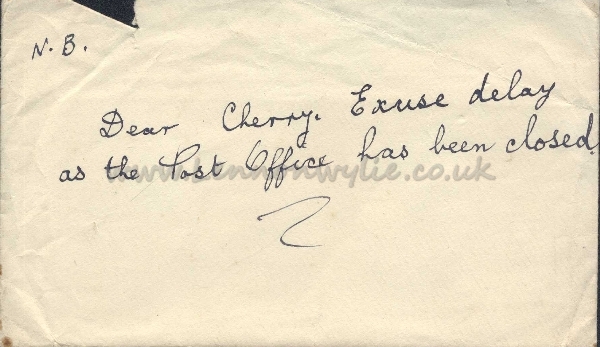 N.B.
Dear Cherry. Exuse delay
as the Post Office has been closed.
www.lennonwylie.co.uk